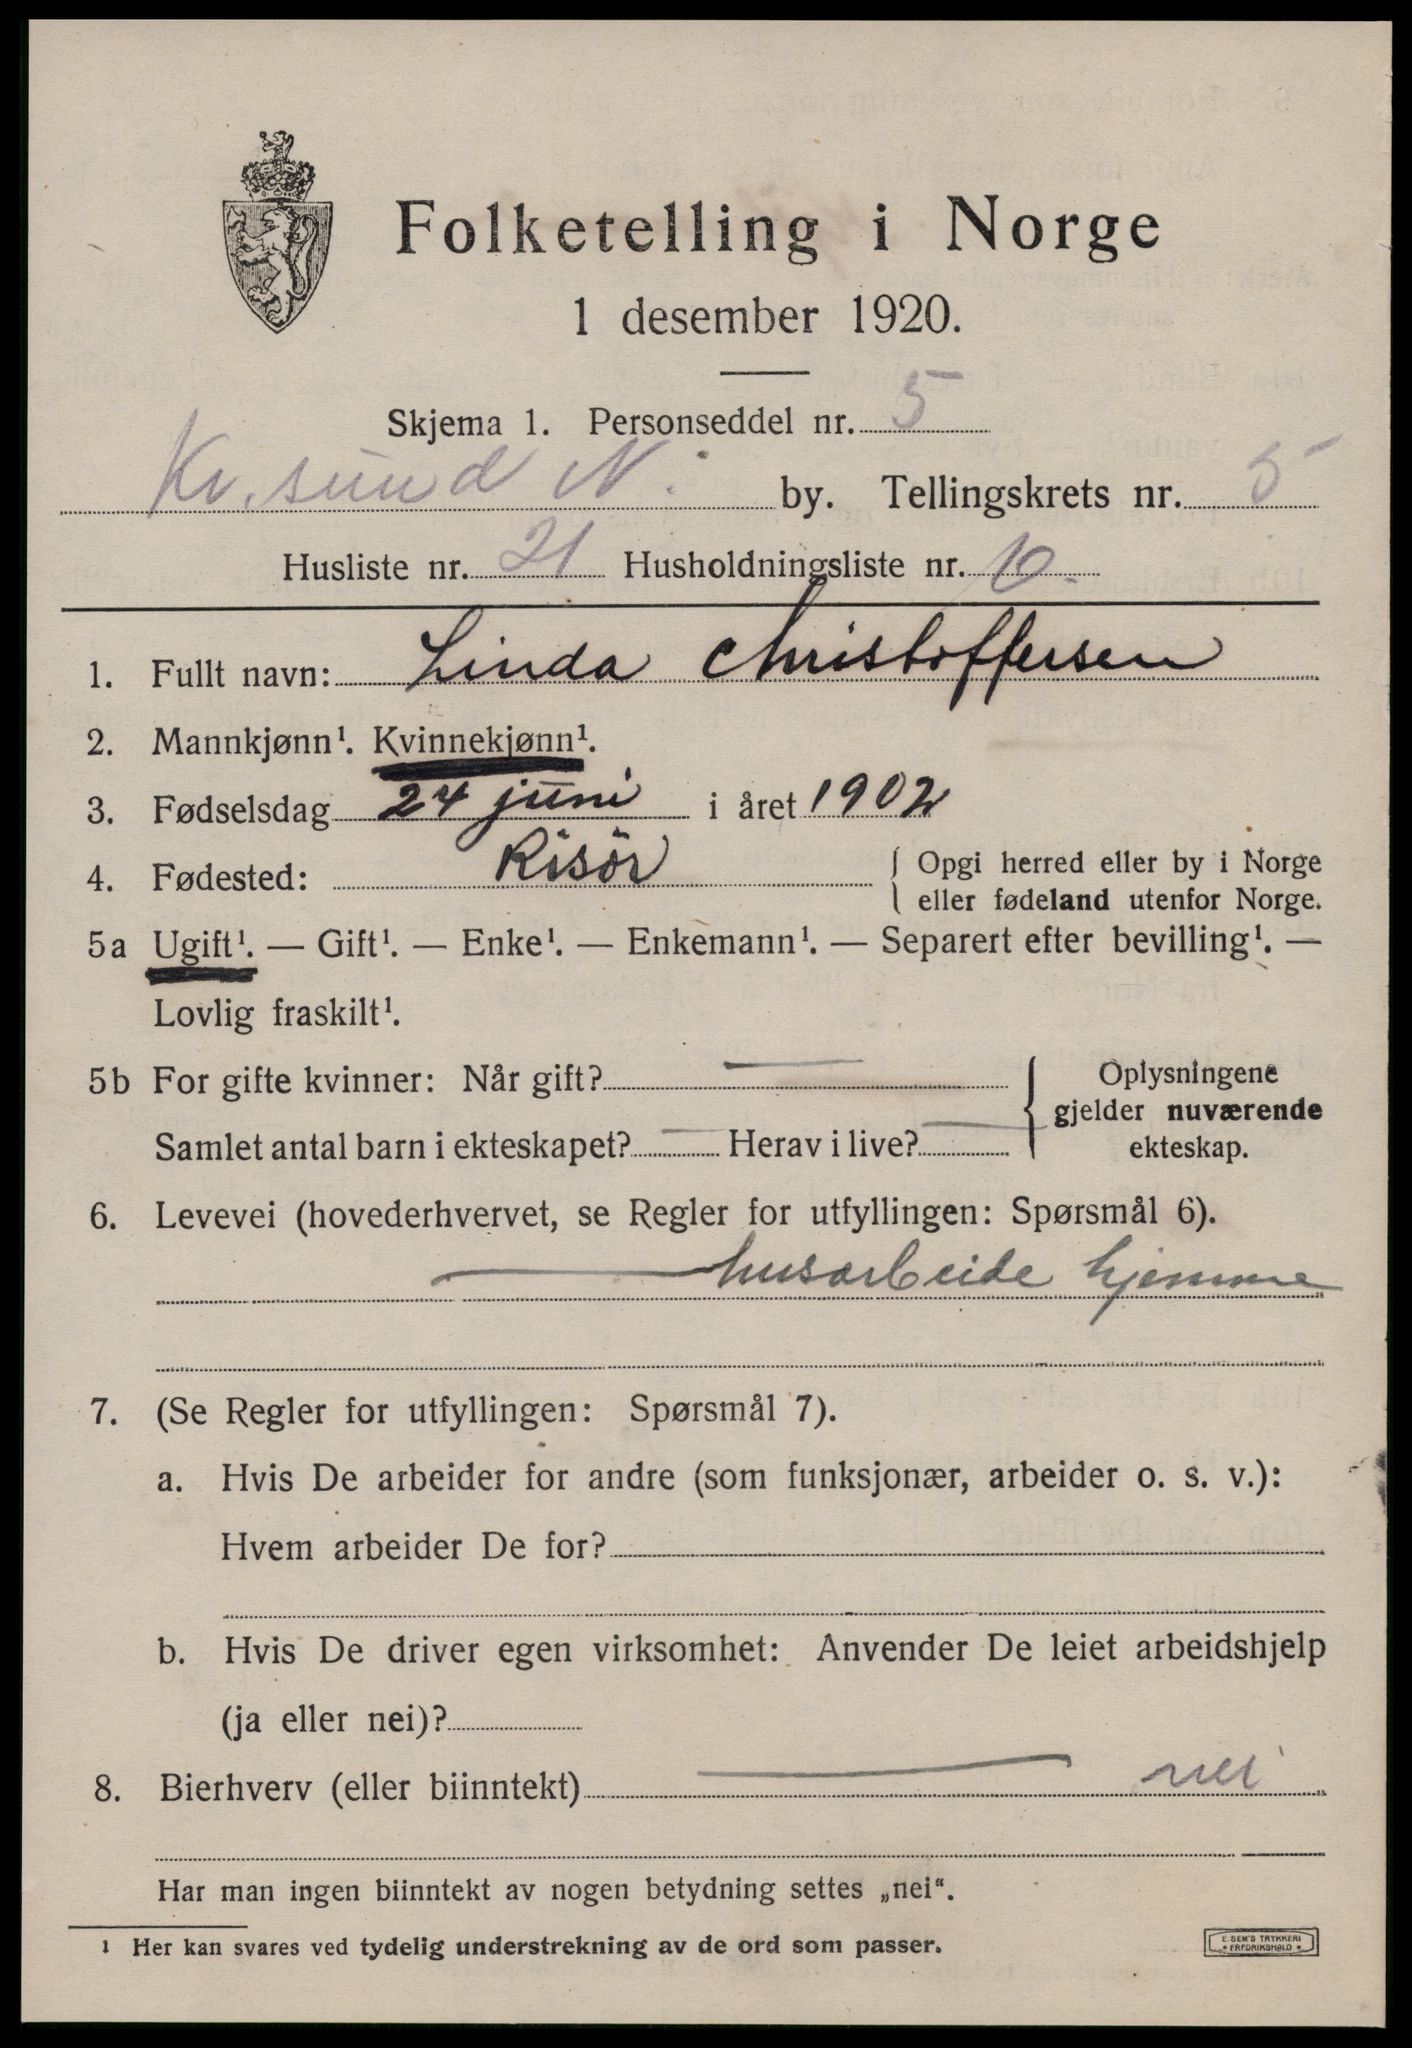 Folketelling i Norge
1 desember 1920.
Skjema 1. Personseddel nr. 5
Kr.sund N. by. Tellingskrets nr. 5
Husliste nr. 21 Husholdningsliste nr. 10.
1. Fullt navn: Linda Christoffersen
2. Mannkjønn¹. Kvinnekjønn¹.
3. Fødselsdag 24 juni i året 1902
4. Fødested: Risör { Opgi herred eller by i Norge
eller fødeland utenfor Norge.
5a Ugift¹. — Gift¹. — Enke¹. — Enkemann¹. — Separert efter bevilling¹. —
Lovlig fraskilt¹.
5b For gifte kvinner: Når gift? — { Oplysningene
gjelder nuværende
Samlet antal barn i ekteskapet? — Herav i live? — ekteskap.
6. Levevei (hovederhvervet, se Regler for utfyllingen: Spørsmål 6).
— husarbeide hjemme
7. (Se Regler for utfyllingen: Spørsmål 7).
a. Hvis De arbeider for andre (som funksjonær, arbeider o. s. v.):
Hvem arbeider De for?
b. Hvis De driver egen virksomhet: Anvender De leiet arbeidshjelp
(ja eller nei)?
8. Bierhverv (eller biinntekt) — nei
Har man ingen biinntekt av nogen betydning settes „nei“.
¹ Her kan svares ved tydelig understrekning av de ord som passer.
E. SEM'S TRYKKERI
* FREDRIKSHALD *